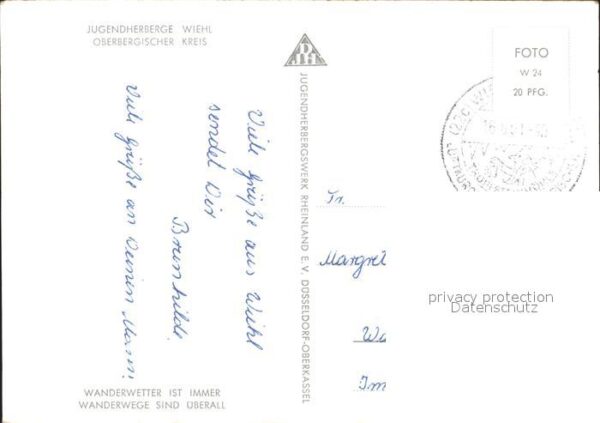 JUGENDHERBERGE WIEHL
OBERBERGISCHER KREIS
Viele Grüße aus Wiehl
sendet Dir
Brunhilde.
Viele Grüße an Deinen Mann!
WANDERWETTER IST IMMER
WANDERWEGE SIND ÜBERALL
DJH
JUGENDHERBERGSWERK RHEINLAND E. V. DÜSSELDORF-OBERKASSEL
FOTO
W 24
20 PFG.
Fr.
Margret
Wa
Im
privacy protection
Datenschutz